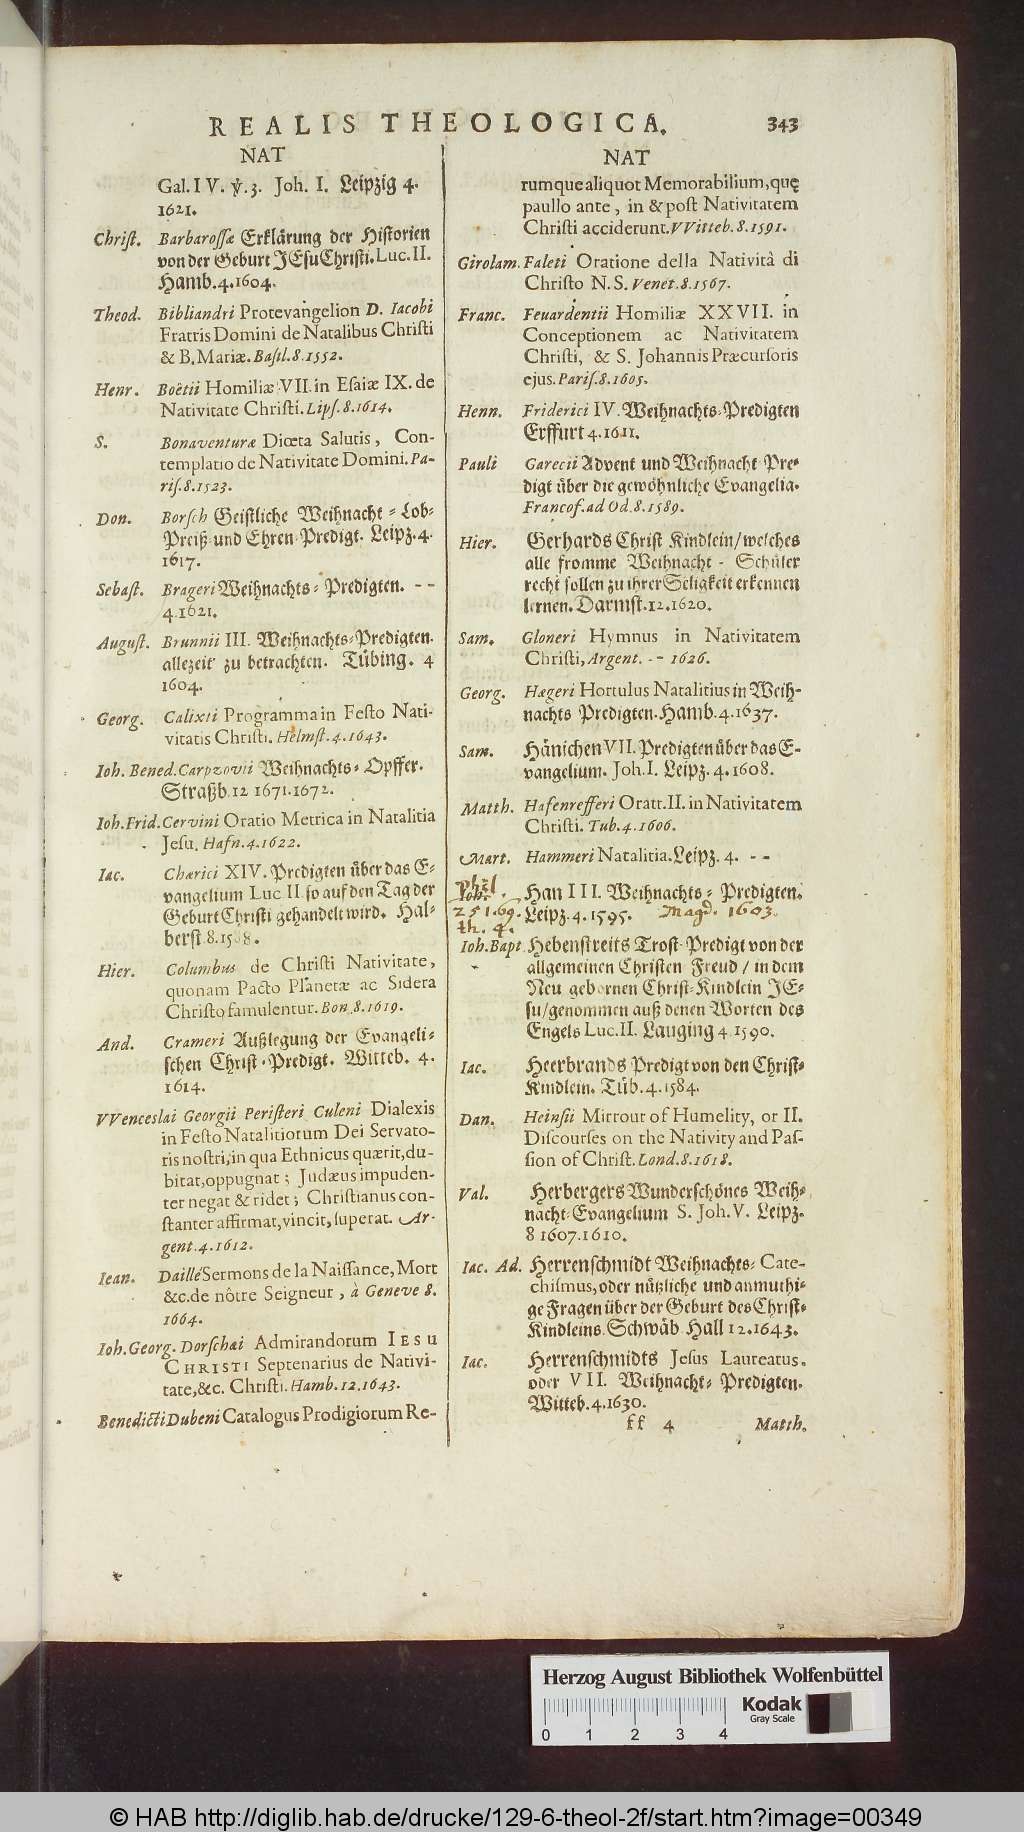 REALIS THEOLOGICA. 343
NAT
Gal. IV. ℣. 3. Joh. I. Leipzig 4.
1621.
Christ. Barbarossæ Erklärung der Historien
von der Geburt JEsu Christi. Luc. II.
Hamb. 4. 1604.
Theod. Bibliandri Protevangelion D. Iacobi
Fratris Domini de Natalibus Christi
& B. Mariæ. Basil. 8. 1552.
Henr. Boëtii Homiliæ VII. in Esaiæ IX. de
Nativitate Christi. Lips. 8. 1614.
S. Bonaventuræ Diœta Salutis, Con-
templatio de Nativitate Domini. Pa-
ris. 8. 1523.
Don. Borsch Geistliche Weihnacht-Lob-
Preiß- und Ehren-Predigt. Leipz. 4.
1617.
Sebast. Brageri Weihnachts-Predigten. - -
4. 1621.
August. Brunnii III. Weihnachts-Predigten.
allezeit zu betrachten. Tübing. 4
1604.
Georg. Calixti Programma in Festo Nati-
vitatis Christi. Helmst. 4. 1643.
Ioh. Bened. Carpzovii Weihnachts-Opffer.
Straßb. 12 1671. 1672.
Ioh. Frid. Cervini Oratio Metrica in Natalitia
Jesu. Hafn. 4. 1622.
Iac. Chærici XIV. Predigten über das E-
vangelium Luc II so auf den Tag der
Geburt Christi gehandelt wird. Hal-
berst. 8.
Hier. Columbus de Christi Nativitate,
quonam Pacto Planetæ ac Sidera
Christo famulentur. Bon. 8. 1619.
And. Crameri Außlegung der Evangeli-
schen Christ-Predigt. Witteb. 4.
1614.
VVenceslai Georgii Peristeri Culeni Dialexis
in Festo Natalitiorum Dei Servato-
ris nostri, in qua Ethnicus quærit, du-
bitat, oppugnat; Judæus impuden-
ter negat & ridet; Christianus con-
stanter affirmat, vincit, superat. Ar-
gent. 4. 1612.
Iean. Daillé Sermons de la Naissance, Mort
&c. de nôtre Seigneur, à Geneve 8.
1664.
Ioh. Georg. Dorschæi Admirandorum IESU
CHRISTI Septenarius de Nativi-
tate, &c. Christi. Hamb. 12. 1643.
Benedicti Dubeni Catalogus Prodigiorum Re-
NAT
rumque aliquot Memorabilium, quę
paullo ante, in & post Nativitatem
Christi acciderunt. VVitteb. 8. 1591.
Girolam. Faleti Oratione della Natività di
Christo N. S. Venet. 8. 1567.
Franc. Feuardentii Homiliæ XXVII. in
Conceptionem ac Nativitatem
Christi, & S. Johannis Præcursoris
ejus. Paris. 8. 1605.
Henn. Friderici IV. Weihnachts-Predigten
Erffurt 4. 1611.
Pauli Garecii Advent und Weihnacht-Pre-
digt über die gewöhnliche Evangelia.
Francof. ad Od. 8. 1589.
Hier. Gerhards Christ Kindlein/ welches
alle fromme Weihnacht - Schüler
recht sollen zu ihrer Seligkeit erkennen
lernen. Darmst. 12. 1620.
Sam. Gloneri Hymnus in Nativitatem
Christi, Argent. - - 1626.
Georg. Hægeri Hortulus Natalitius in Weih-
nachts Predigten. Hamb. 4. 1637.
Sam. Hänichen VII. Predigten über das E-
vangelium. Joh. I. Leipz. 4. 1608.
Matth. Hafenrefferi Oratt. II. in Nativitatem
Christi. Tub. 4. 1606.
Mart. Hammeri Natalitia. Leipz. 4. - -
Phil.
Ioh. Han III. Weihnachts-Predigten.
251.69. Leipz. 4. 1595. Magd. 1603.
th. 4.
Ioh. Bapt Hebenstreits Trost-Predigt von der
allgemeinen Christen Freud / in dem
Neu gebornen Christ-Kindlein JE-
su/ genommen auß denen Worten des
Engels Luc. II. Lauging 4 1590.
Iac. Heerbrands Predigt von den Christ-
Kindlein. Tüb. 4. 1584.
Dan. Heinsii Mirrour of Humelity, or II.
Discourses on the Nativity and Pas-
sion of Christ. Lond. 8. 1618.
Val. Herbergers Wunderschönes Weih-
nacht-Evangelium S. Joh. V. Leipz.
8 1607. 1610.
Iac. Ad. Herrenschmidt Weihnachts-Cate-
chismus, oder nüßliche und anmuthi-
ge Fragen über der Geburt des Christ-
Kindleins. Schwäb Hall 12. 1643.
Iac. Herrenschmidts Jesus Laureatus.
oder VII. Weihnacht-Predigten.
Witteb. 4. 1630.
ff 4 Matth.
Herzog August Bibliothek Wolfenbüttel
Kodak
Gray Scale
0 1 2 3 4
© HAB http://diglib.hab.de/drucke/129-6-theol-2f/start.htm?image=00349